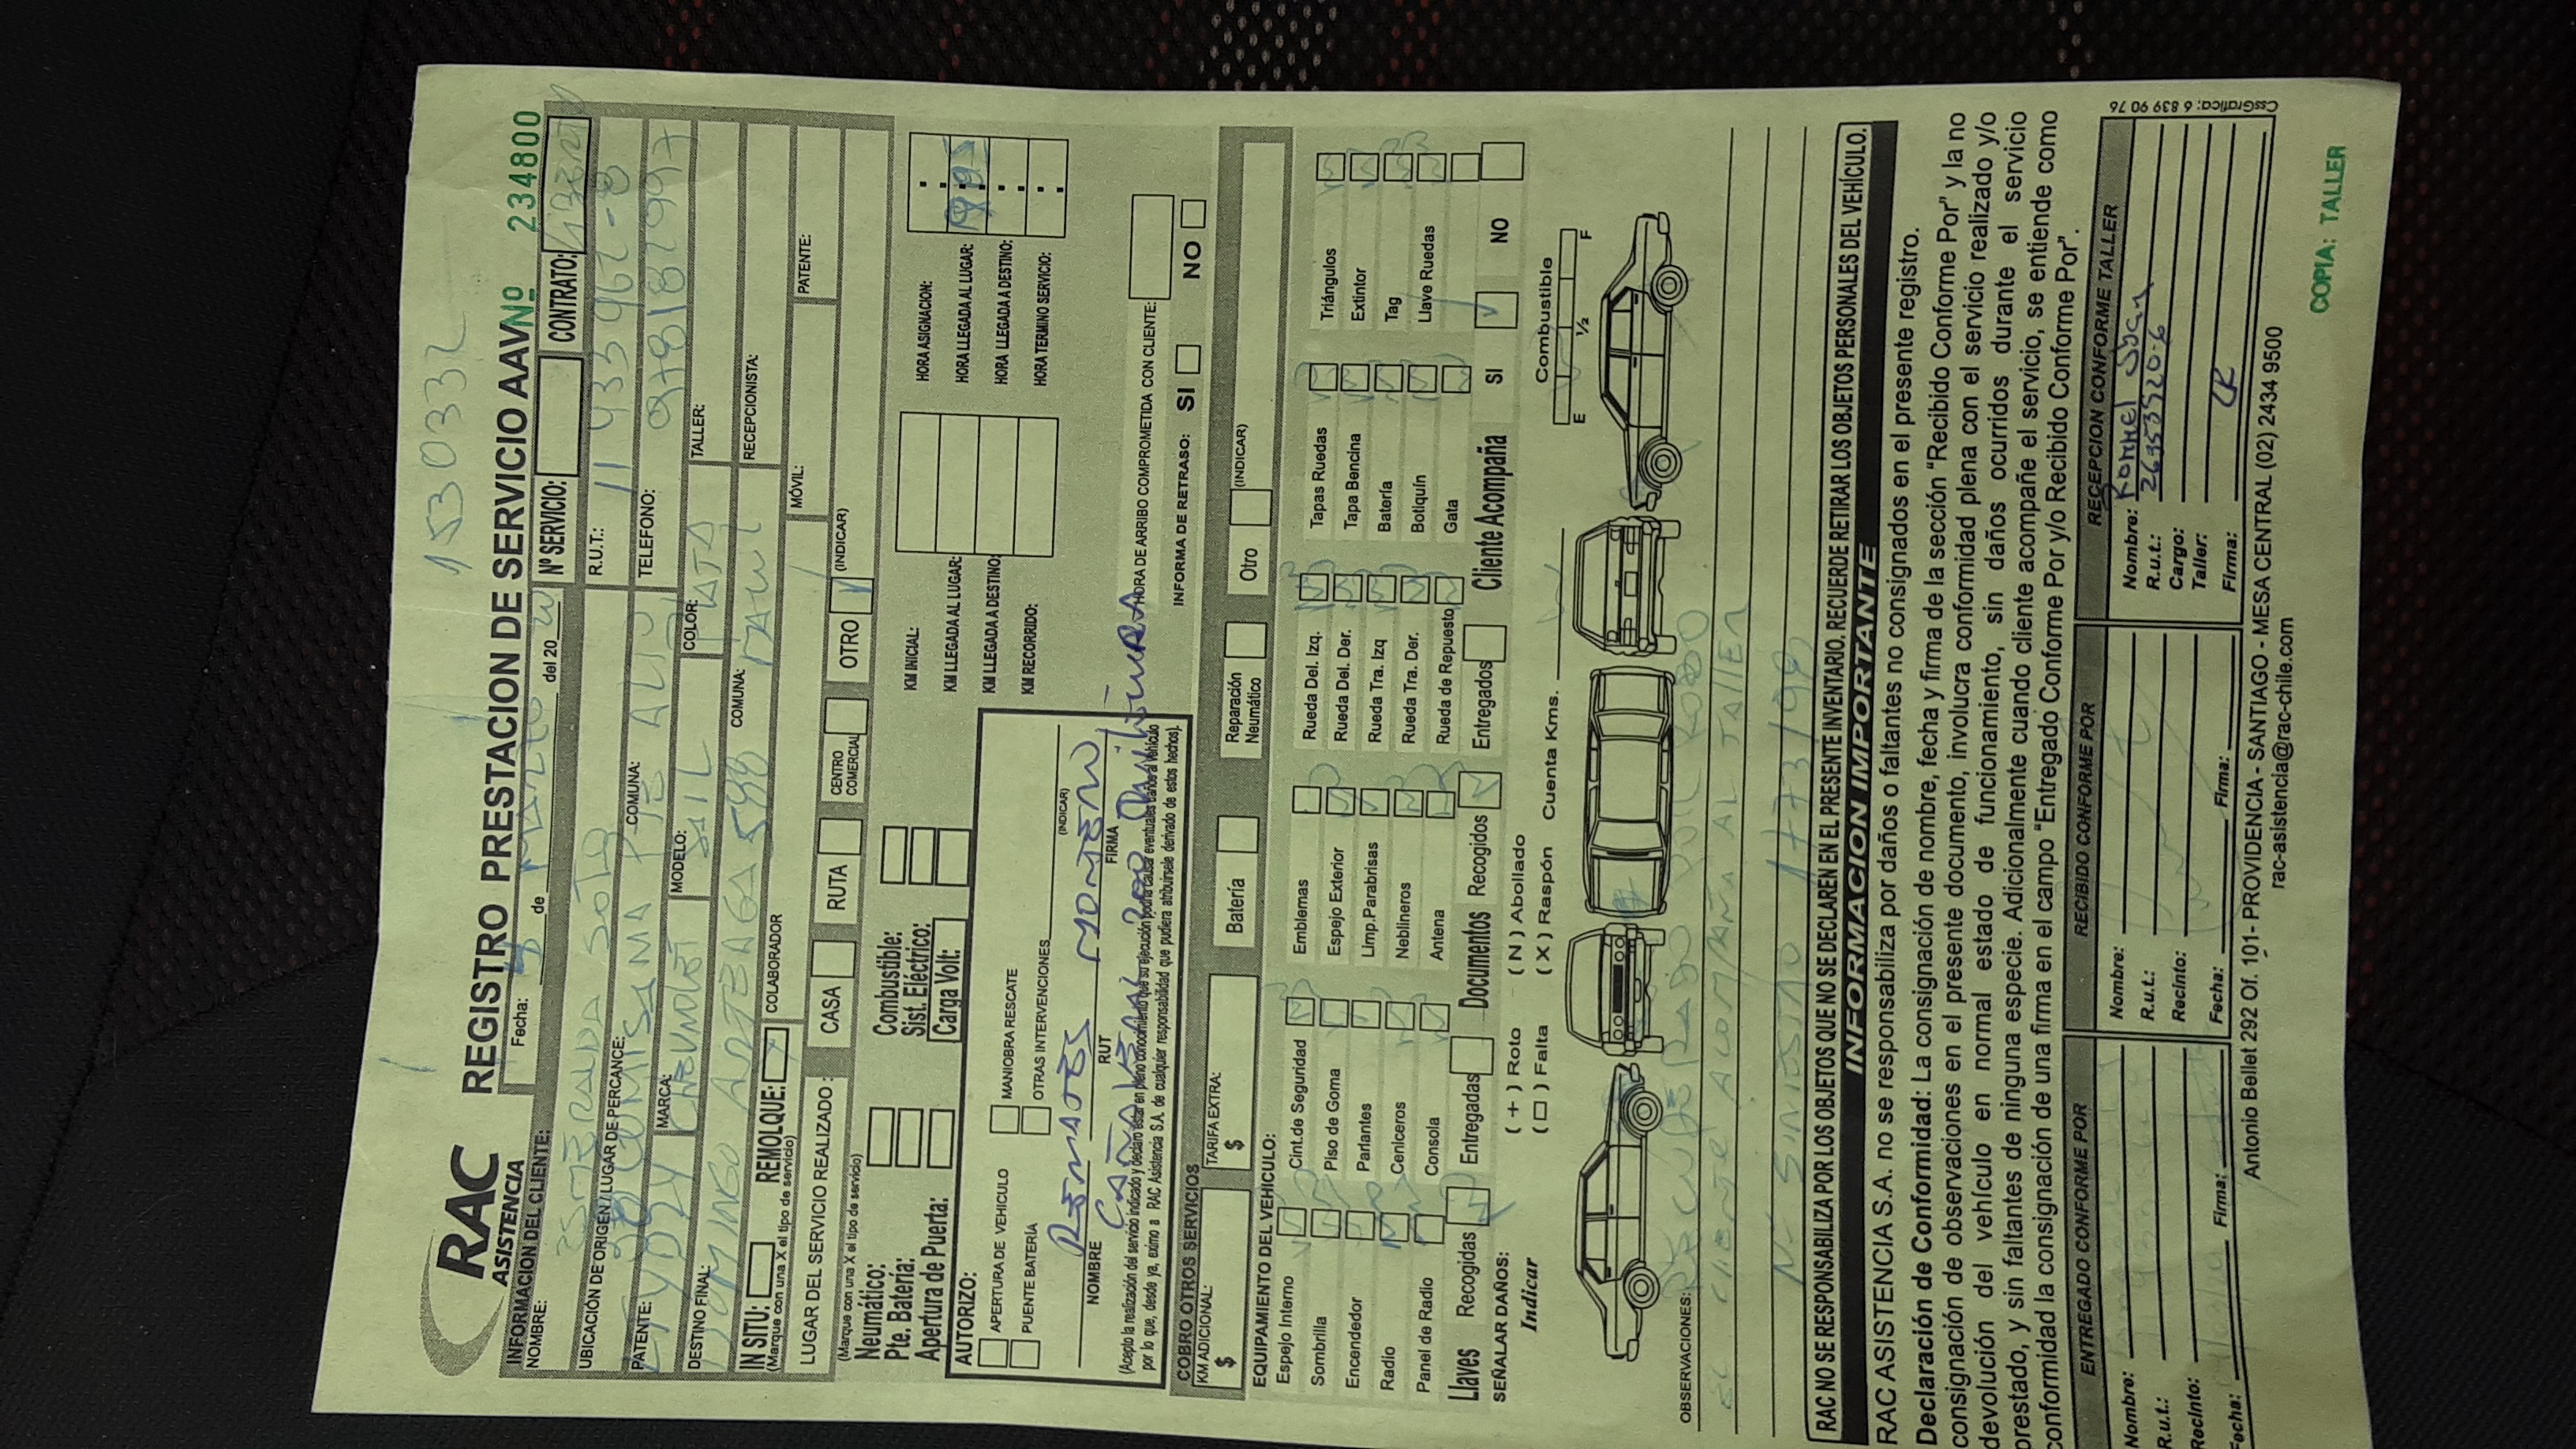 1530332
RAC
ASISTENCIA
REGISTRO PRESTACION DE SERVICIO AAV Nº 234800
INFORMACION DEL CLIENTE:
Fecha: de MARZO del 20
Nº SERVICIO:
CONTRATO:
NOMBRE: ESMERALDA SOTO
R.U.T.:
UBICACIÓN DE ORIGEN / LUGAR DE PERCANCE:
COMUNA: PTE ALTO
TELEFONO:
PATENTE:
MARCA: CHEVROLET
MODELO: SAIL
COLOR:
TALLER:
DESTINO FINAL: DOMINGO ARTEAGA 599
COMUNA: MACUL
RECEPCIONISTA:
IN SITU:
REMOLQUE:
(Marque con una X el tipo de servicio)
COLABORADOR
MÓVIL:
PATENTE:
LUGAR DEL SERVICIO REALIZADO :
(Marque con una X el tipo de servicio)
CASA
RUTA
CENTRO COMERCIAL
OTRO
(INDICAR)
Neumático:
Pte. Batería:
Apertura de Puerta:
Combustible:
Sist. Eléctrico:
Carga Volt:
KM INICIAL:
KM LLEGADA AL LUGAR:
KM LLEGADA A DESTINO:
KM RECORRIDO:
HORA ASIGNACION:
HORA LLEGADA AL LUGAR:
HORA LLEGADA A DESTINO:
HORA TERMINO SERVICIO:
AUTORIZO:
APERTURA DE VEHICULO
MANIOBRA RESCATE
PUENTE BATERÍA
OTRAS INTERVENCIONES
(INDICAR)
MONTERO
NOMBRE
RUT
FIRMA
(Acepto la realización del servicio indicado y declaro estar en pleno conocimiento que su ejecución podría causar eventuales daños al vehículo
por lo que, desde ya, eximo a RAC Asistencia S.A. de cualquier responsabilidad que pudiera atribuírsele derivado de estos hechos).
HORA DE ARRIBO COMPROMETIDA CON CLIENTE:
INFORMA DE RETRASO: SI NO
COBRO OTROS SERVICIOS
KM ADICIONAL:
$
TARIFA EXTRA:
$
Batería
Reparación Neumático
Otro
(INDICAR)
EQUIPAMIENTO DEL VEHICULO:
Espejo Interno
Cint.de Seguridad
Emblemas
Rueda Del. Izq.
Tapas Ruedas
Triángulos
Sombrilla
Piso de Goma
Espejo Exterior
Rueda Del. Der.
Tapa Bencina
Extintor
Encendedor
Parlantes
Limp.Parabrisas
Rueda Tra. Izq
Batería
Tag
Radio
Ceniceros
Neblineros
Rueda Tra. Der.
Botiquín
Llave Ruedas
Panel de Radio
Consola
Antena
Rueda de Repuesto
Gata
Llaves Recogidas Entregadas
Documentos Recogidos Entregados
Cliente Acompaña SI NO
SEÑALAR DAÑOS:
Indicar
( + ) Roto
( □ ) Falta
( N ) Abollado
( X ) Raspón
Cuenta Kms.
Combustible
E 1/2 F
OBSERVACIONES:
CLIENTE ACOMPAÑA AL TALLER
RAC NO SE RESPONSABILIZA POR LOS OBJETOS QUE NO SE DECLAREN EN EL PRESENTE INVENTARIO. RECUERDE RETIRAR LOS OBJETOS PERSONALES DEL VEHÍCULO.
INFORMACION IMPORTANTE
RAC ASISTENCIA S.A. no se responsabiliza por daños o faltantes no consignados en el presente registro.
Declaración de Conformidad: La consignación de nombre, fecha y firma de la sección "Recibido Conforme Por" y la no
consignación de observaciones en el presente documento, involucra conformidad plena con el servicio realizado y/o
devolución del vehículo en normal estado de funcionamiento, sin daños ocurridos durante el servicio
prestado, y sin faltantes de ninguna especie. Adicionalmente cuando cliente acompañe el servicio, se entiende como
conformidad la consignación de una firma en el campo "Entregado Conforme Por y/o Recibido Conforme Por".
ENTREGADO CONFORME POR
Nombre:
R.u.t.:
Recinto:
Fecha: Firma:
RECIBIDO CONFORME POR
Nombre:
R.u.t.:
Recinto:
Fecha: Firma:
RECEPCION CONFORME TALLER
Nombre:
R.u.t.: 26353920-6
Cargo:
Taller:
Firma:
CssGrafica: 6 839 90 76
Antonio Bellet 292 Of. 101- PROVIDENCIA - SANTIAGO - MESA CENTRAL (02) 2434 9500
rac-asistencia@rac-chile.com
COPIA: TALLER